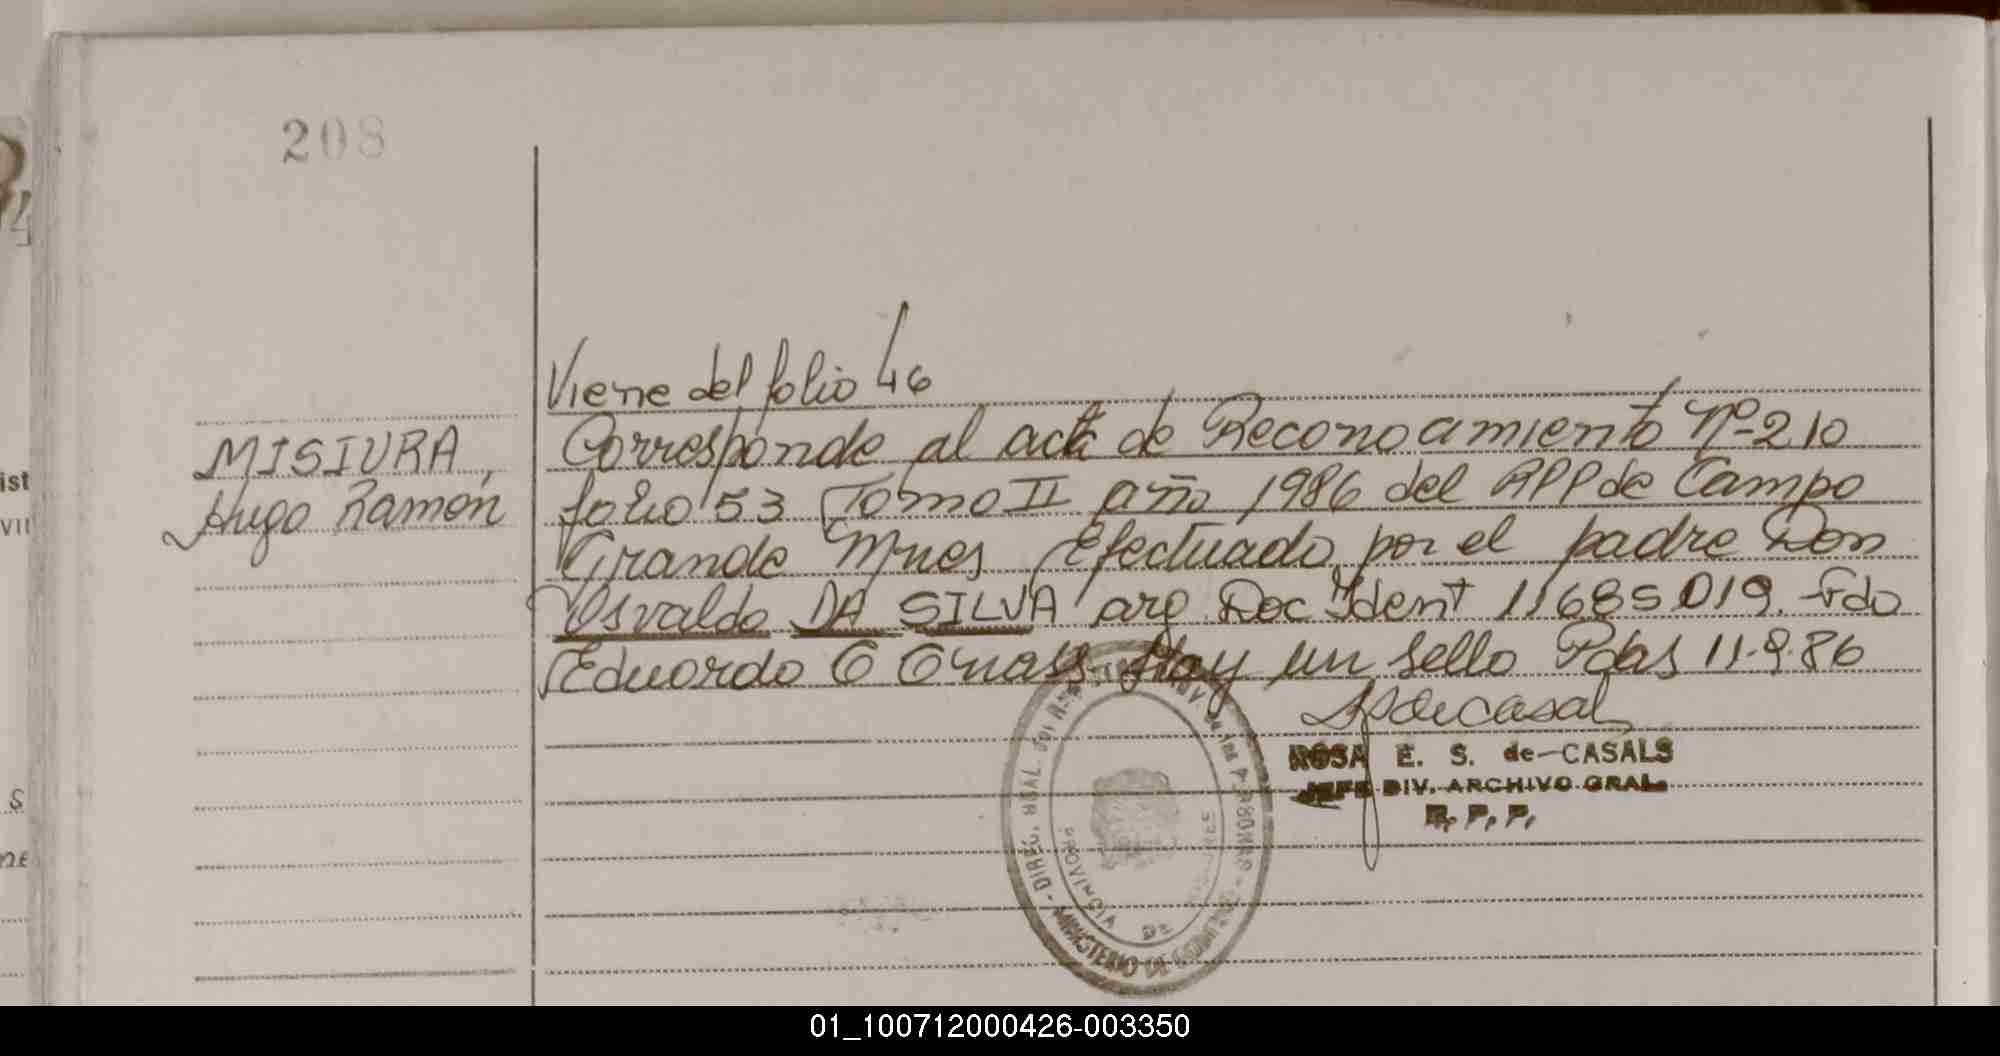 208
Viene del folio 46
MISIURA,
Hugo Ramón
Corresponde al acta de Reconocimiento Nº 210
folio 53 Tomo II año 1986 del RPP de Campo
Grande Mnes Efectuado por el padre Don
Osvaldo DA SILVA arg Doc Ident 11685019. Fdo
Eduardo O Hay un sello Pdas 11.9.86
ROSA E. S. de CASALS
JEFE DIV. ARCHIVO GRAL.
R. P. P.
PROVINCIA DE MISIONES
MINISTERIO DE GOBIERNO
ist
VII
S
01_100712000426-003350